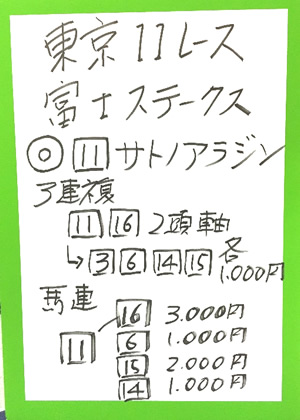 東京11レース
富士ステークス
◎ 11 サトノアラジン
3連複
11 16 2頭軸
↳ 3 6 14 15 各1.000円
馬連
11 16 3.000円
6 1.000円
15 2.000円
14 1.000円